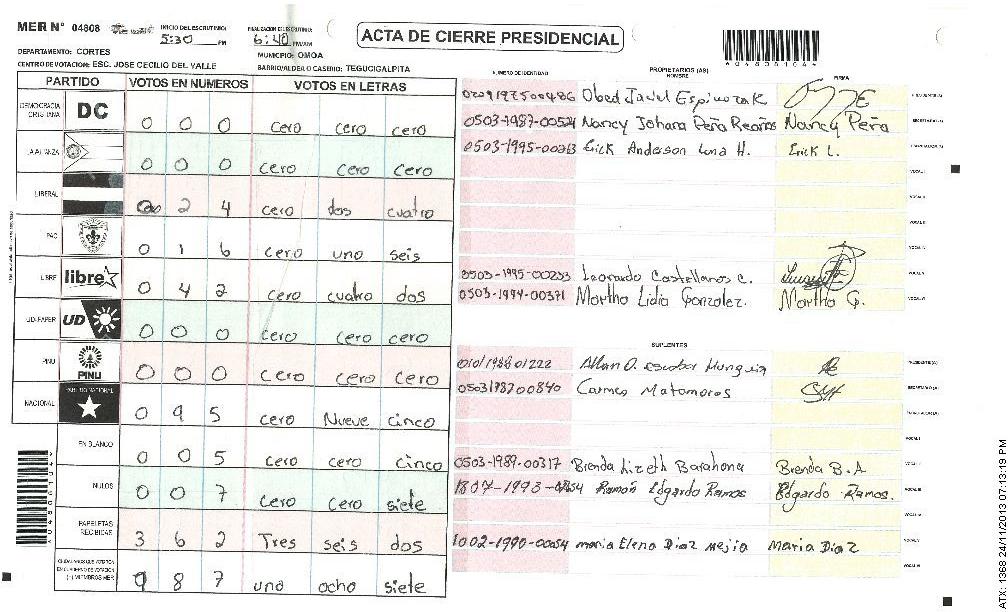 MER Nº 04808 INICIO DEL ESCRUTINIO: 5:30 PM FINALIZACION DEL ESCRUTINIO: 6:40 PM/AM
ACTA DE CIERRE PRESIDENCIAL
DEPARTAMENTO: CORTES MUNICPIO: OMOA
CENTRO DE VOTACION: ESC. JOSE CECILIO DEL VALLE BARRIO/ALDEA O CASERIO: TEGUCIGALPITA
PARTIDO VOTOS EN NUMEROS VOTOS EN LETRAS
DEMOCRACIA CRISTIANA DC 0 0 0 cero cero cero
LA ALIANZA 0 0 0 cero cero cero
LIBERAL 2 4 cero dos cuatro
PAC 0 1 6 cero uno seis
LIBRE libre 0 4 2 cero cuatro dos
UD-FAPER UD 0 0 0 cero cero cero
PINU PINU 0 0 0 cero cero cero
NACIONAL PARTIDO NACIONAL 0 9 5 cero Nueve cinco
EN BLANCO 0 0 5 cero cero cinco
NULOS 0 0 7 cero cero siete
PAPELETAS RECIBIDAS 3 6 2 Tres seis dos
CIUDADANOS QUE VOTARON EN CUADERNO DE VOTACION (+) MIEMBROS MER 8 7 uno ocho siete
NUMERO DE IDENTIDAD PROPIETARIOS (AS) NOMBRE FIRMA
Obed Javiel Espinoza R PRESIDENTE(A)
0503-1987-00524 Nancy Johana Peña Reaños Nancy Peña SECRETARIO(A)
0503-1995-00213 Erick Anderson Luna H. Erick L. ESCRUTADOR(A)
VOCAL I
VOCAL II
VOCAL III
VOCAL IV
0503-1995-00233 Leonardo Castellanos C. VOCAL V
0503-1994-00371 Martha Lidia Gonzalez. Martha G. VOCAL VI
SUPLENTES
0101198801222 Allan O. escobar Munguia PRESIDENTE(A)
0503198200840 Carmen Matamoros SECRETARIO(A)
ESCRUTADOR(A)
VOCAL I
0503-1989-00317 Brenda Lizeth Barahona Brenda B.A VOCAL II
1807-1993- Ramón Edgardo Ramos Edgardo Ramos. VOCAL III
VOCAL IV
1002-1990-00054 maria Elena Diaz Mejia Maria Diaz VOCAL V
VOCAL VI
ATX: 1368 24/11/2013 07:13:19 PM